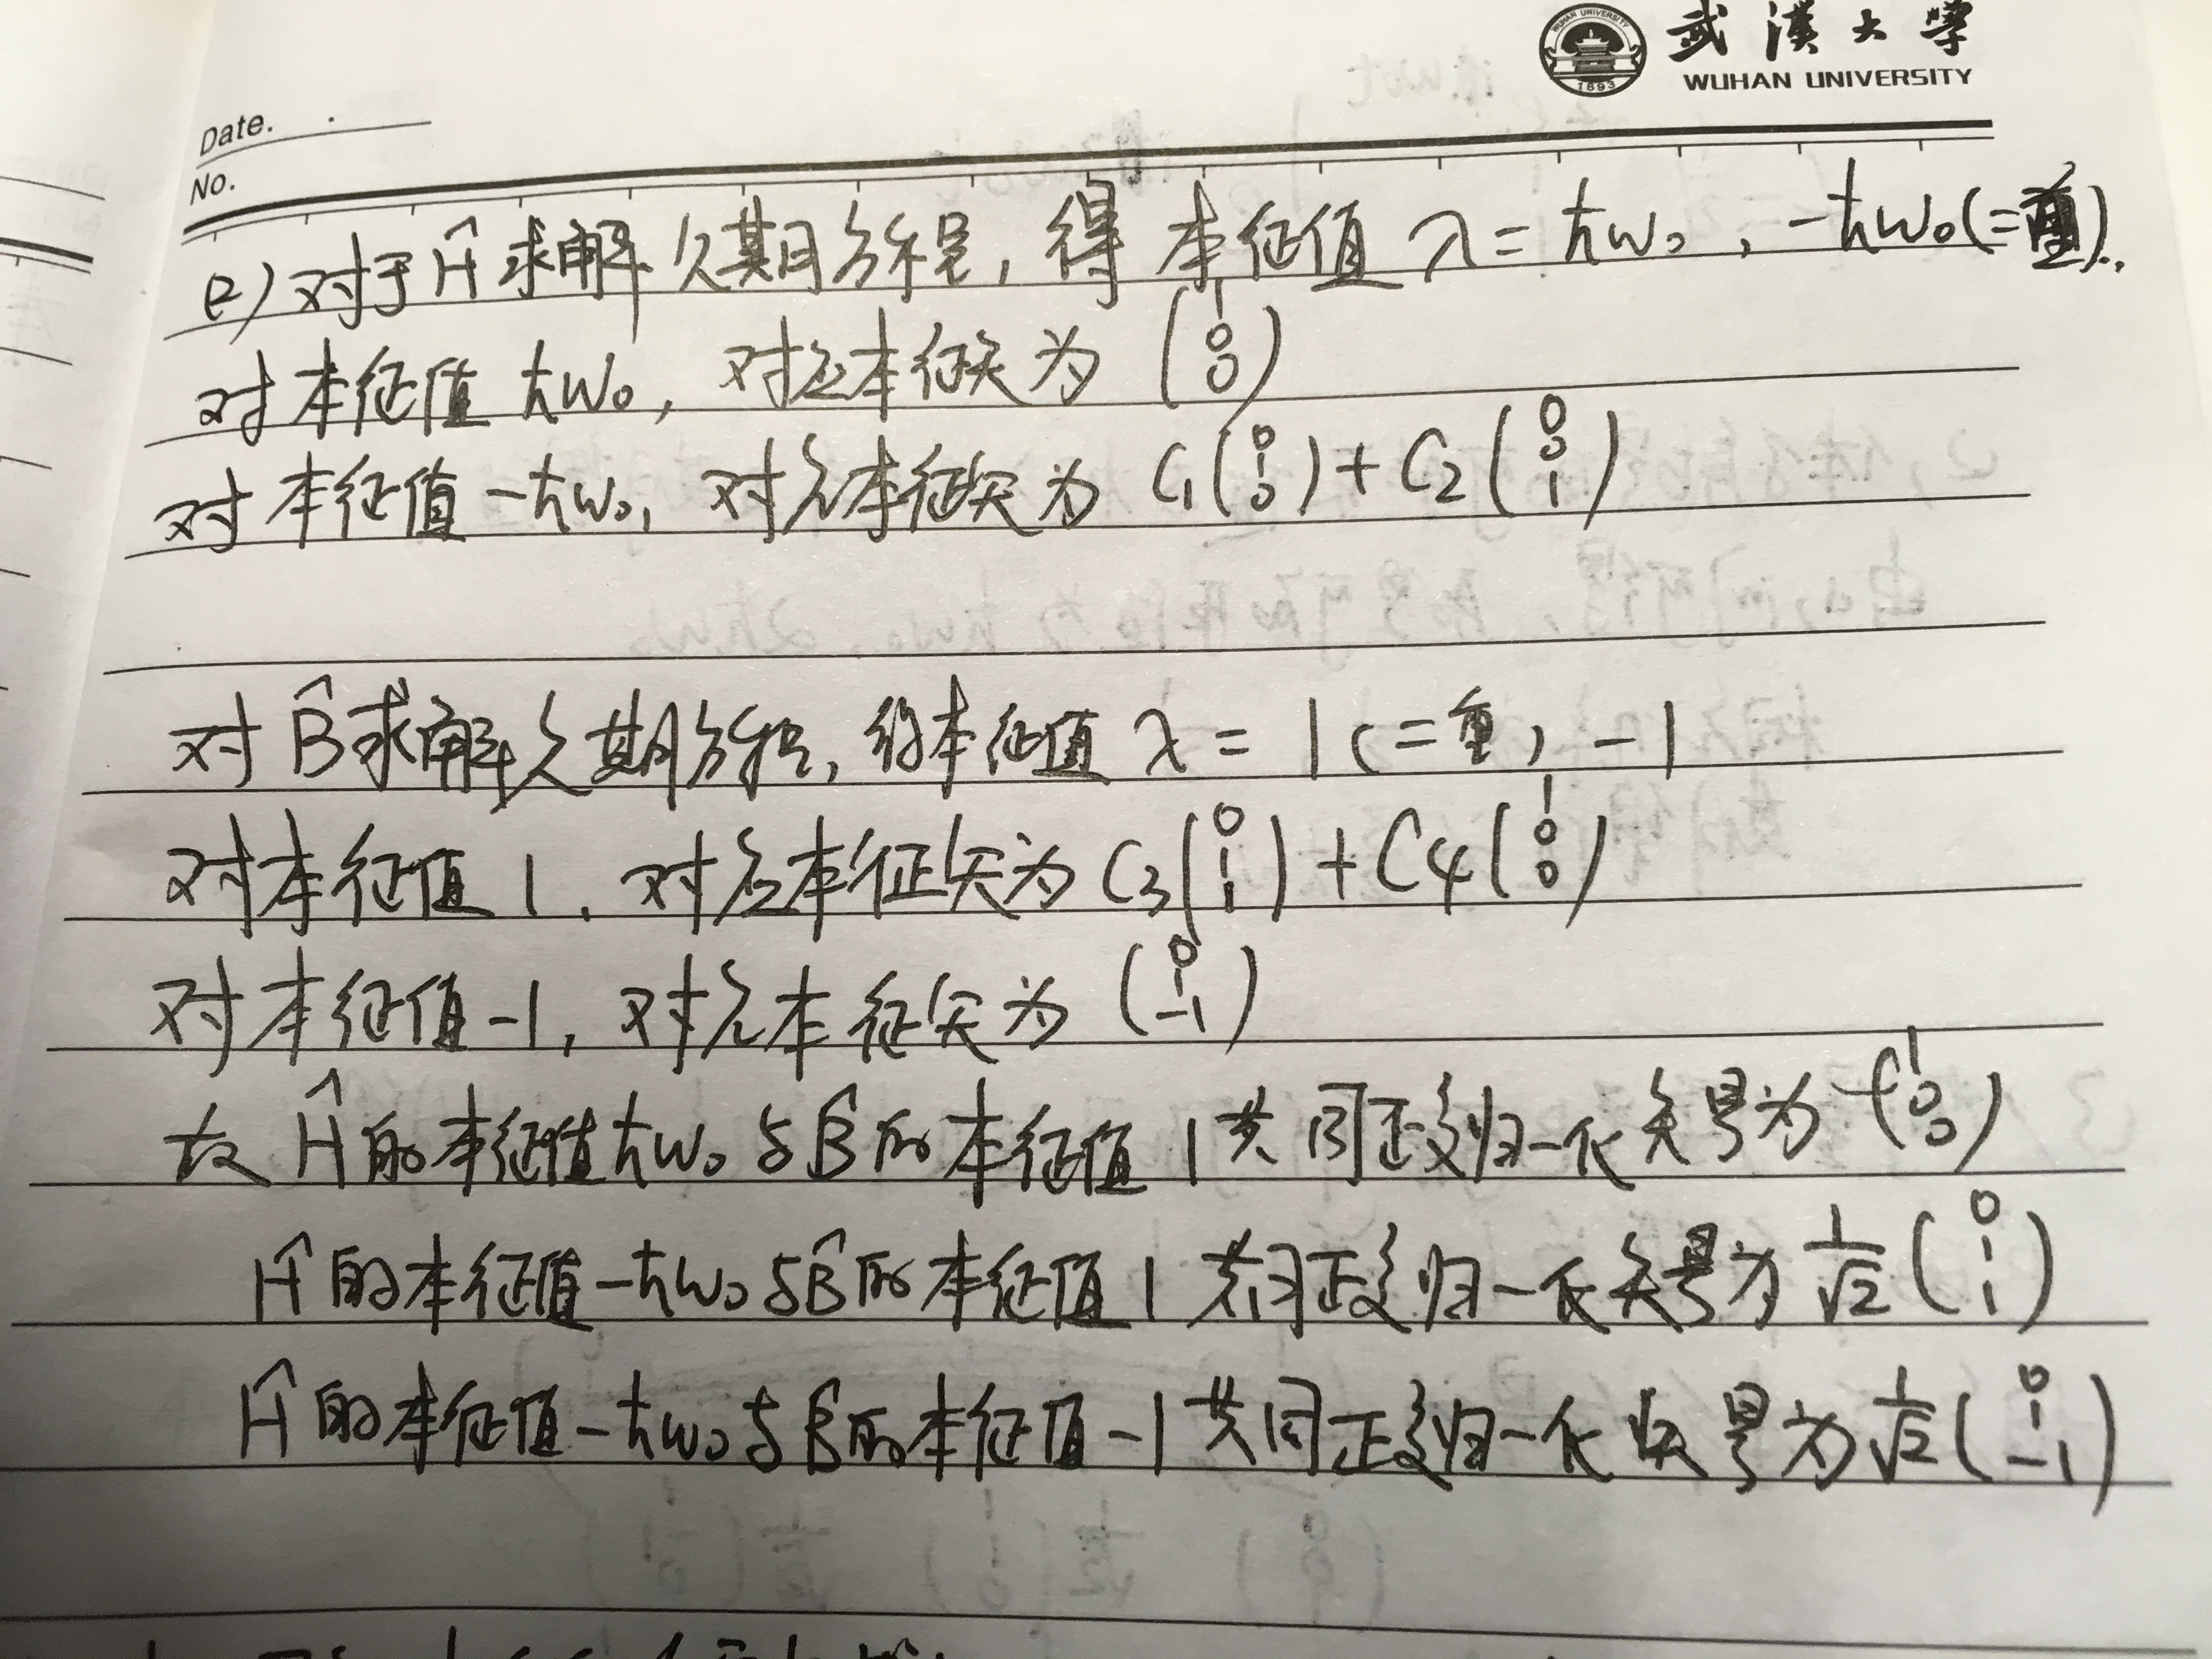 武漢大學
WUHAN UNIVERSITY
WUHAN UNIVERSITY
1893
Date.
No.
(2)对于Ĥ求解久期方程,得本征值 λ=ħω₀,-ħω₀(二重).
对本征值 ħω₀,对应本征矢为 (1 0 0)
对本征值 -ħω₀,对应本征矢为 C₁(0 1 0)+C₂(0 0 1)
对B̂求解久期方程,得本征值 λ=1(二重),-1
对本征值 1,对应本征矢为 C₃(0 1 1)+C₄(1 0 0)
对本征值 -1,对应本征矢为 (0 1 -1)
故Ĥ的本征值ħω₀与B̂的本征值1共同正交归一化矢量为 (1 0 0)
Ĥ的本征值-ħω₀与B̂的本征值1共同正交归一化矢量为 1/√2 (0 1 1)
Ĥ的本征值-ħω₀与B̂的本征值-1共同正交归一化矢量为 1/√2 (0 1 -1)